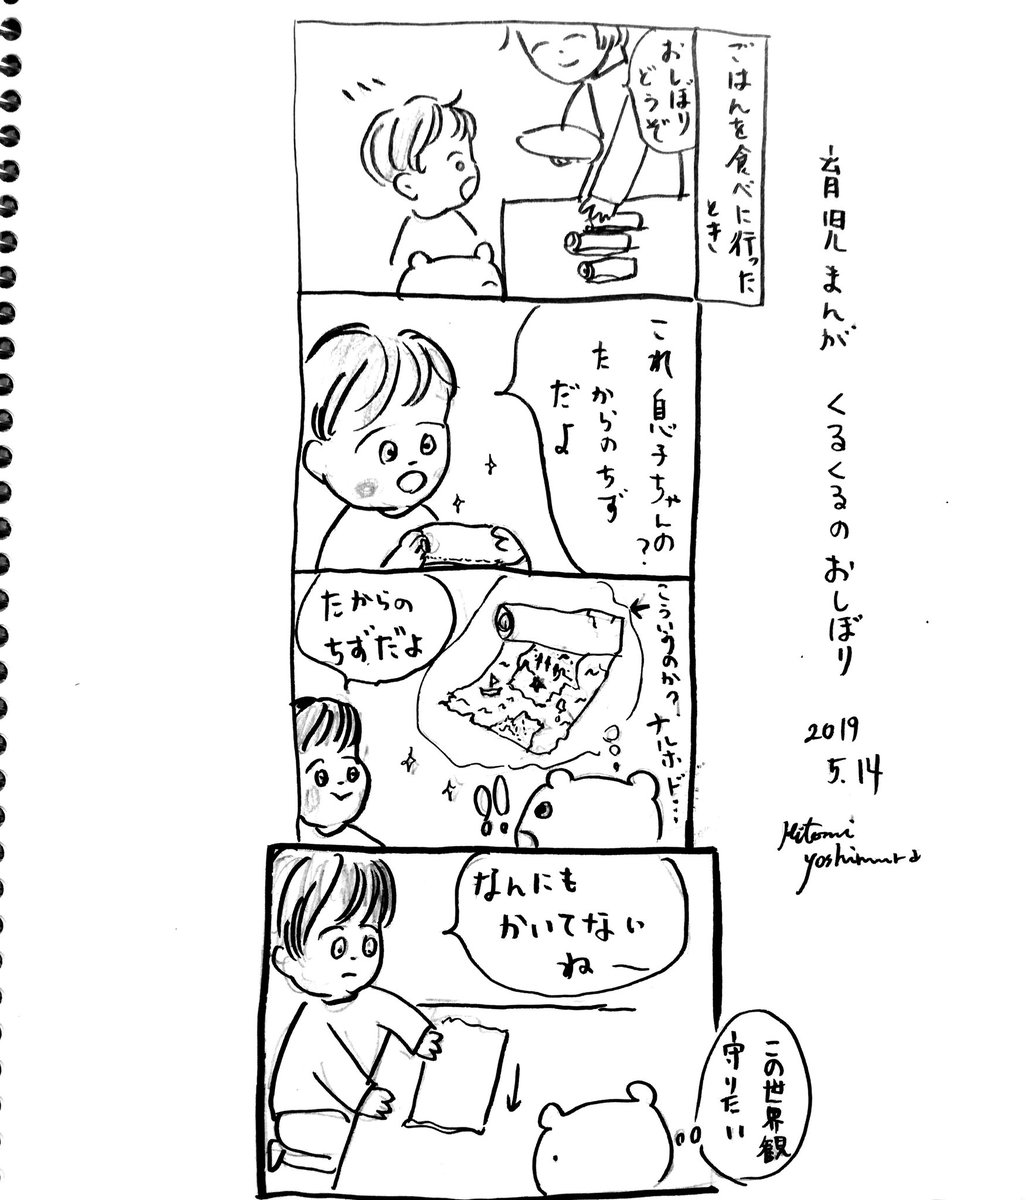 育児まんが くるくるのおしぼり 2019
5.14
Hitomi
yoshimura
ごはんを食べに行った
とき
おしぼり
どうぞ
これ息子ちゃんの
たからのちず
だよ
?
こういうのか?ナルホド…
たからの
ちずだよ
なんにも
かいてない
ねー
この世界観
守りたい